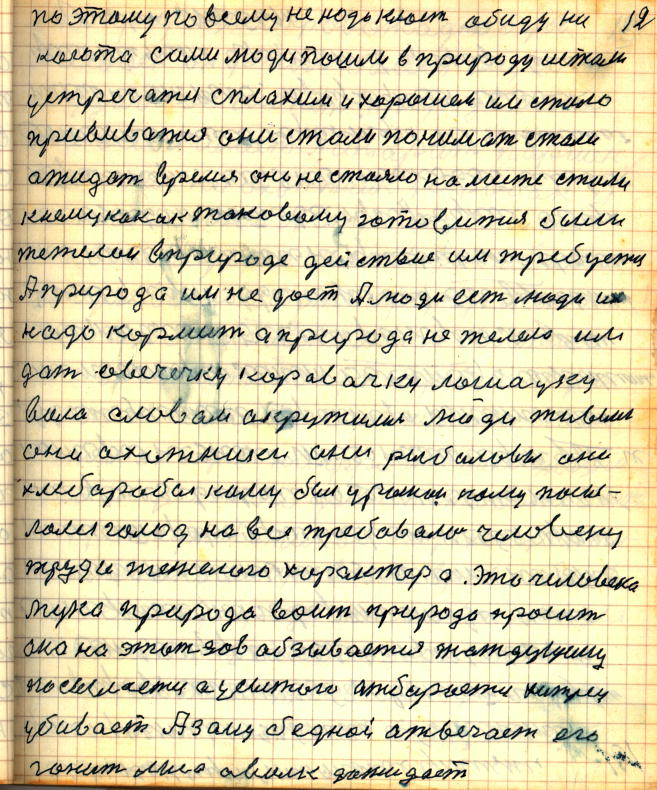 поэтому по всему не надо класт обиду ни 12
кагота сами люди пошли в природу
устречатия с плахим и харошем им стало
прививатия они стали понимат стали
ажидат время оно не стояло на месте стали
к нему как ак таковому готовития были
тежелои в природе действие им требуетия
А природа им не дает А люди ест люди их
надо кормит а природа не желею им
дат овечечку каровачку лошадку
вола словам акружилия люди живым
они ахотники они рыбаловы они
хлебаробы каму был урожай каму посы-
лалия голод на все требовало человеку
труда тежелого характера. Это человека
мука природа воит природа просит
она на этот зов абзывается
посылаети а усытого атбираети
убивает А за
бедной атвечает его
гонит а волк дажидает